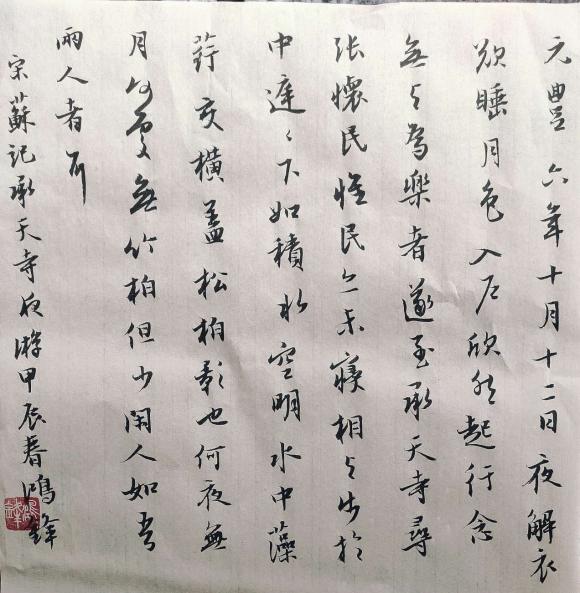 元豐六年十月十二日夜解衣
欲睡月色入户欣然起行念
無与為樂者遂至承天寺尋
张懷民懷民亦未寢相与步於
中庭〻下如積水空明水中藻
荇交横蓋松柏影也何夜無
月何處無竹柏但少閑人如吾
兩人者耳
宋蘇記承天寺夜游甲辰春鴻鋒